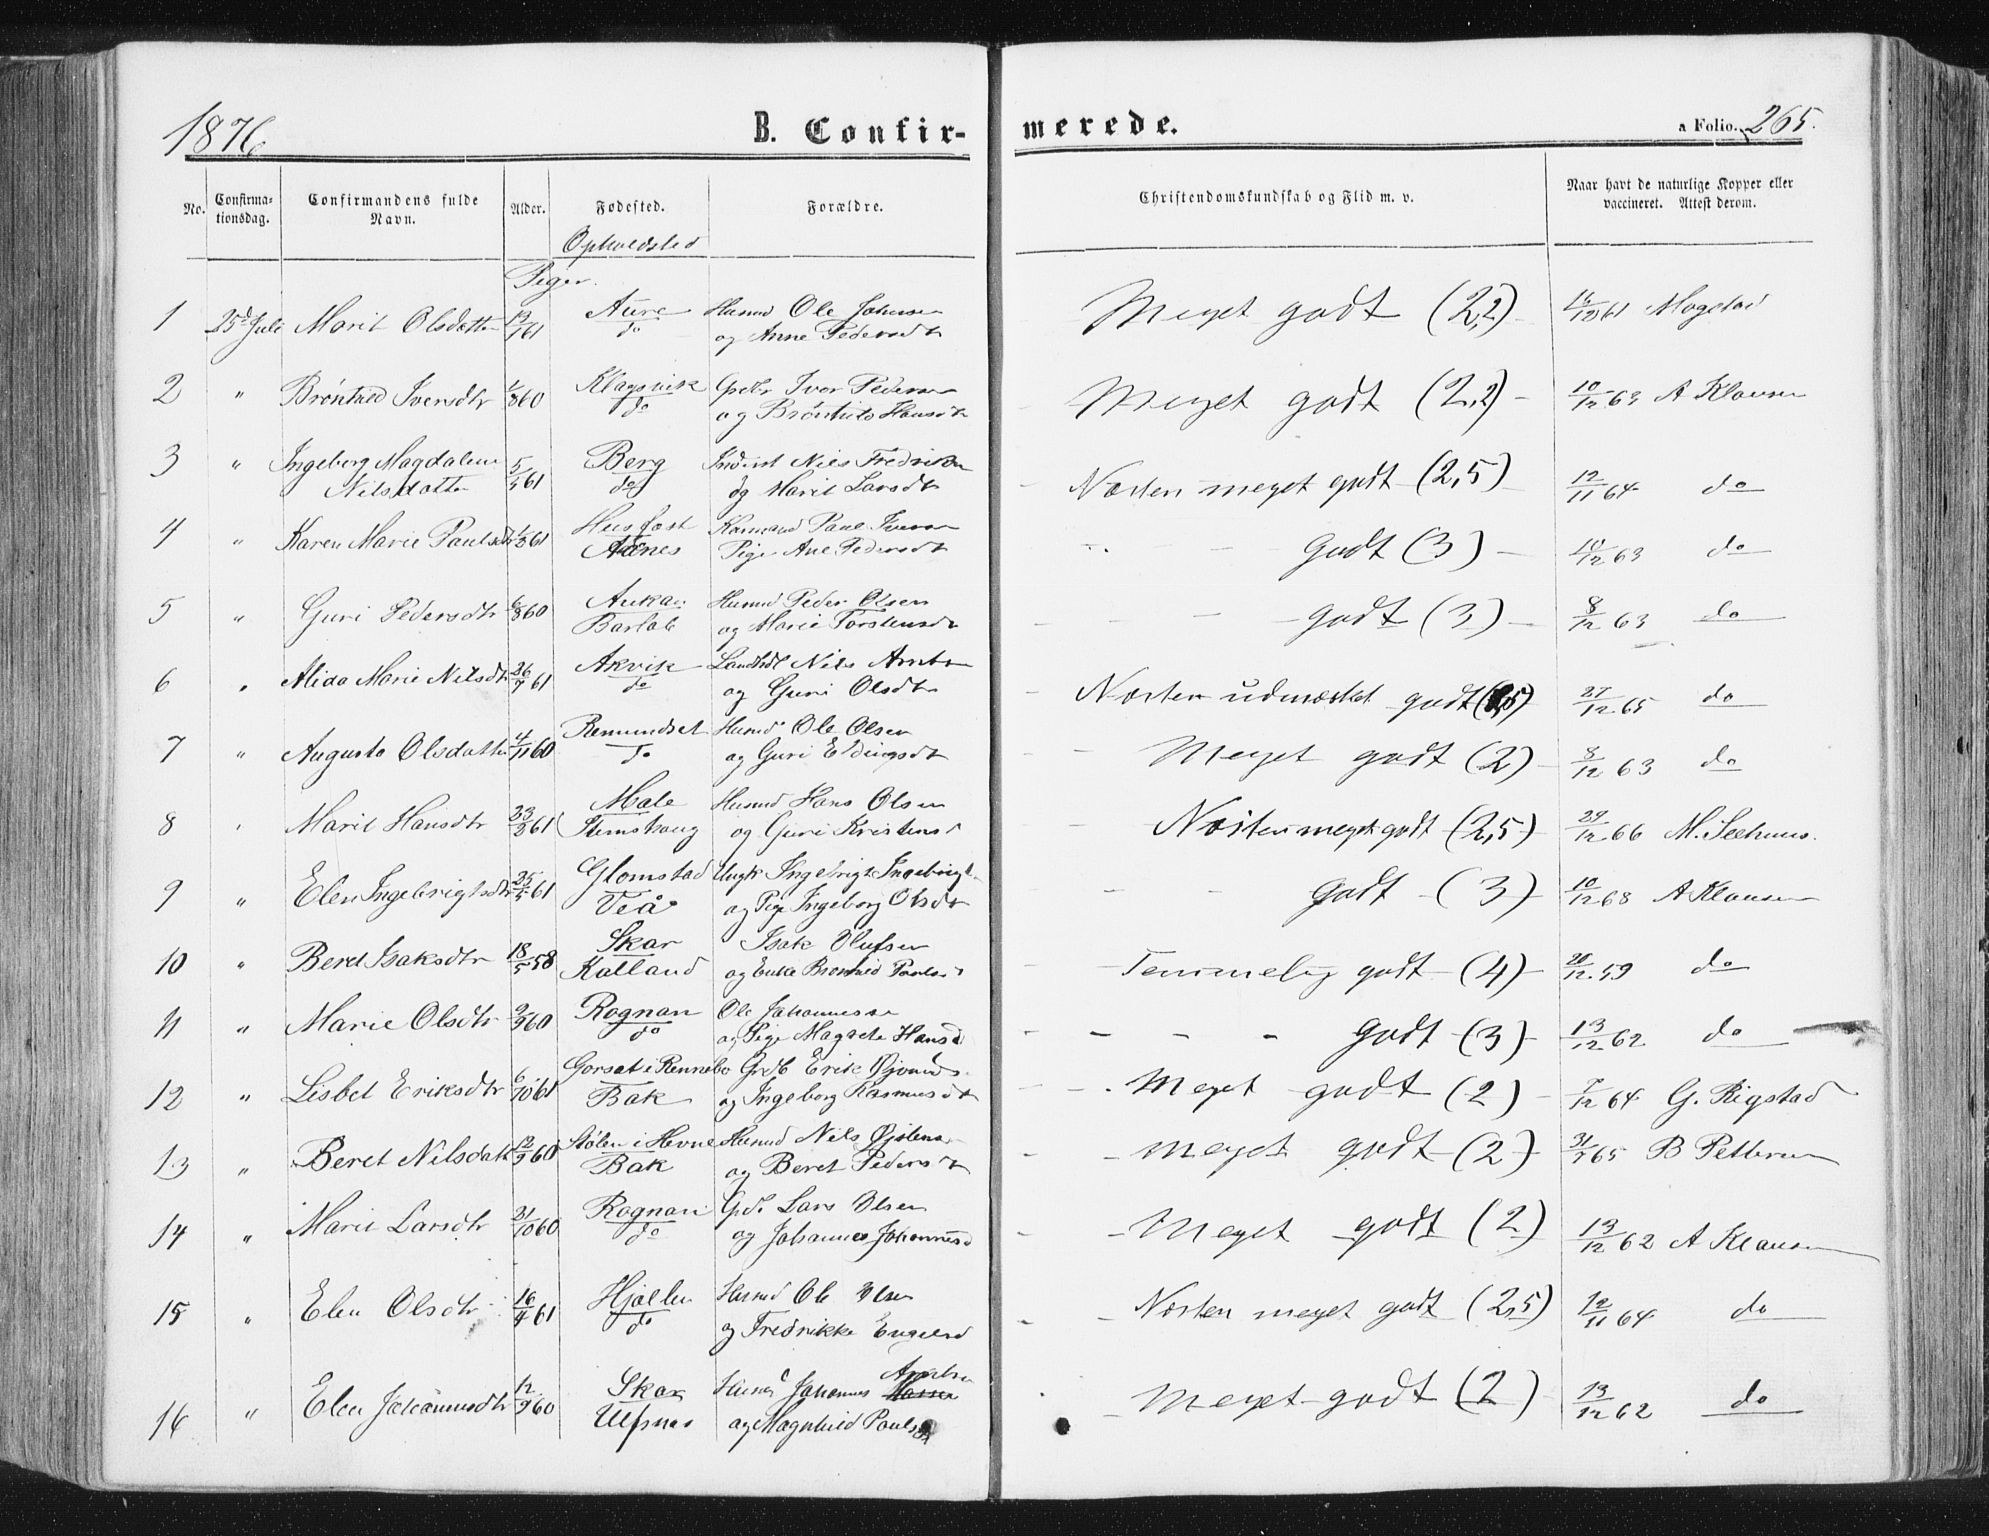 1876
B. Confir-
merede.
a Folio. 265.
No.
Confirma-
tionsdag.
Confirmandens fulde
Navn.
Alder.
Fødested.
Opholdsted
Forældre.
Christendomskundskab og Flid m. v.
Naar havt de naturlige Kopper eller
vaccineret. Attest derom.
Piger.
1 25de Juli Marit Olsdatter 61 Aure Husmd Ole Johnsen Meget godt (2,2) 61 Mogstad
do og Anne Pedersdtr
2 " Brønhild Iversdtr 60 Klagsvik Gbr Iver Pedersen Meget godt (2,2) 10/12 63 A Klausen
do og Brønhild Hansdtr
3 " Ingeborg Magdalene 5/5 61 Berg Inderst Nils Fredriksen Næsten meget godt (2,5) 12/11 64 do
Nilsdatter do og Marit Larsdtr
4 " Karen Marie Paulsdtr 61 Husfast Paul Iversen Godt (3) 10/12 63 do
Aanes Pige Ane Pedersdtr
5 " Guri Pedersdtr 6/8 60 Aukan Husmd Peder Olsen godt (3) 8/12 63 do
Barlab og Marie Torstensdtr
6 " Alida Marie Nilsdtr 26/7 61 Akvik Nils Arntsen Næsten udmærket godt (1,5) 27/12 65 do
do og Guri Olsdtr
7 " Augusta Olsdatter 4/11 60 Remundset Husmd Ole Olsen Meget godt (2) 8/12 63 do
do og Guri Eldingsdtr
8 " Marit Hansdtr 23/3 61 Male Husmd Hans Olsen Næsten meget godt (2,5) 29/12 66 M. Seehuus.
Stemshaug og Guri Kristensd
9 " Elen Ingebrigtsdtr 25/5 61 Glomstad Ungk Ingebrigt Ingebrigts Godt (3) 10/12 68 A Klausen
Veå og Pige Ingeborg Olsdtr
10 " Beret Isaksdtr 18/5 58 Skar Isak Olufsen Temmelig godt (4) 20/12 59 do
Kalland og Enke Brønhild Paulsd
11 " Marie Olsdtr 9/9 60 Rognan Ole Johannessen Godt (3) 13/12 62 do
do og Pige Magrete Hansd
12 " Lisbet Eriksdtr 6/10 61 Gorsat i Rennebo Grdb Erik Meget godt (2) 7/12 64 G. Rigstad
Bak og Ingeborg Rasmusdtr
13 " Beret Nilsdatt 12/9 60 Stølen i Hevne Husmd Nils meget godt (2) 31/7 65 B Pettersen
Bak og Beret Pedersdtr
14 " Marit Larsdtr 31/10 60 Rognan Lars Olsen Meget godt (2) 13/12 62 A Klausen
do og Johannes Johannesd
15 " Elen Olsdtr 16/4 61 Hjællen Husmd Ole Olsen Næsten meget godt (2,5) 12/11 64 do
do og Fredrikke Engelsd
16 " Elen Johannesdtr 12/9 60 Skar Husmd Johannes Meget godt (2) 13/12 62 do
Ulfsnes og Magnhild Paulsd